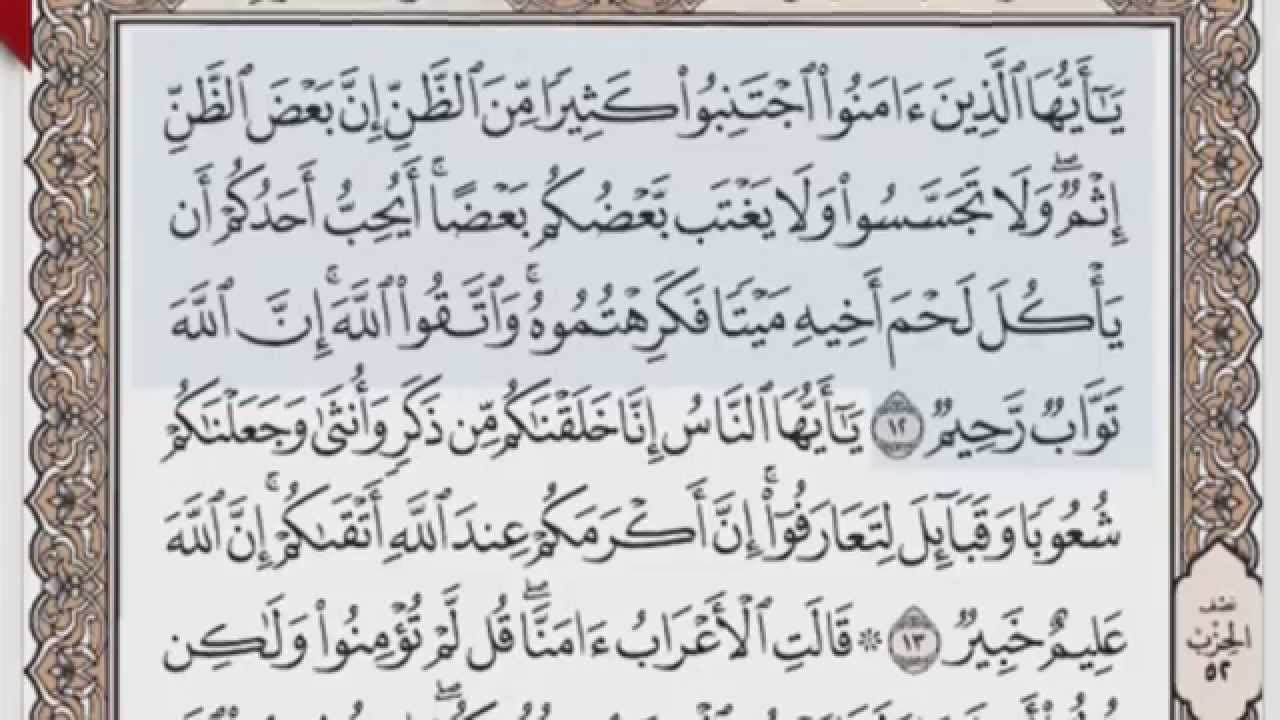 يَـٰٓأَيُّهَا ٱلَّذِينَ ءَامَنُوا۟ ٱجْتَنِبُوا۟ كَثِيرًا مِّنَ ٱلظَّنِّ إِنَّ بَعْضَ ٱلظَّنِّ
إِثْمٌ ۖ وَلَا تَجَسَّسُوا۟ وَلَا يَغْتَب بَّعْضُكُم بَعْضًا ۚ أَيُحِبُّ أَحَدُكُمْ أَن
يَأْكُلَ لَحْمَ أَخِيهِ مَيْتًا فَكَرِهْتُمُوهُ ۚ وَٱتَّقُوا۟ ٱللَّهَ ۚ إِنَّ ٱللَّهَ
تَوَّابٌ رَّحِيمٌ ١٢ يَـٰٓأَيُّهَا ٱلنَّاسُ إِنَّا خَلَقْنَـٰكُم مِّن ذَكَرٍ وَأُنثَىٰ وَجَعَلْنَـٰكُمْ
شُعُوبًا وَقَبَآئِلَ لِتَعَارَفُوٓا۟ ۚ إِنَّ أَكْرَمَكُمْ عِندَ ٱللَّهِ أَتْقَىٰكُمْ ۚ إِنَّ ٱللَّهَ
عَلِيمٌ خَبِيرٌ ١٣ ۞ قَالَتِ ٱلْأَعْرَابُ ءَامَنَّا ۖ قُل لَّمْ تُؤْمِنُوا۟ وَلَـٰكِن
نصف
الحزب
٥٢